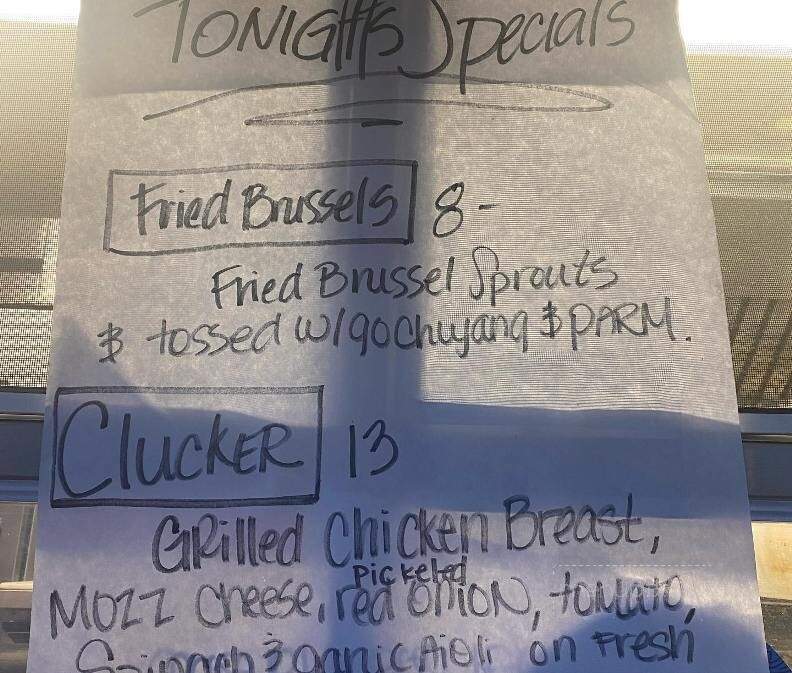 TONIGHTS Specials
Fried Brussels 8-
Fried Brussel Sprouts
& tossed w/gochujang & PARM.
CLUCKER 13
GRilled Chicken Breast,
Pickeled
MOZZ cheese, red ONION, tomato,
Spinach & garlic Aioli on Fresh